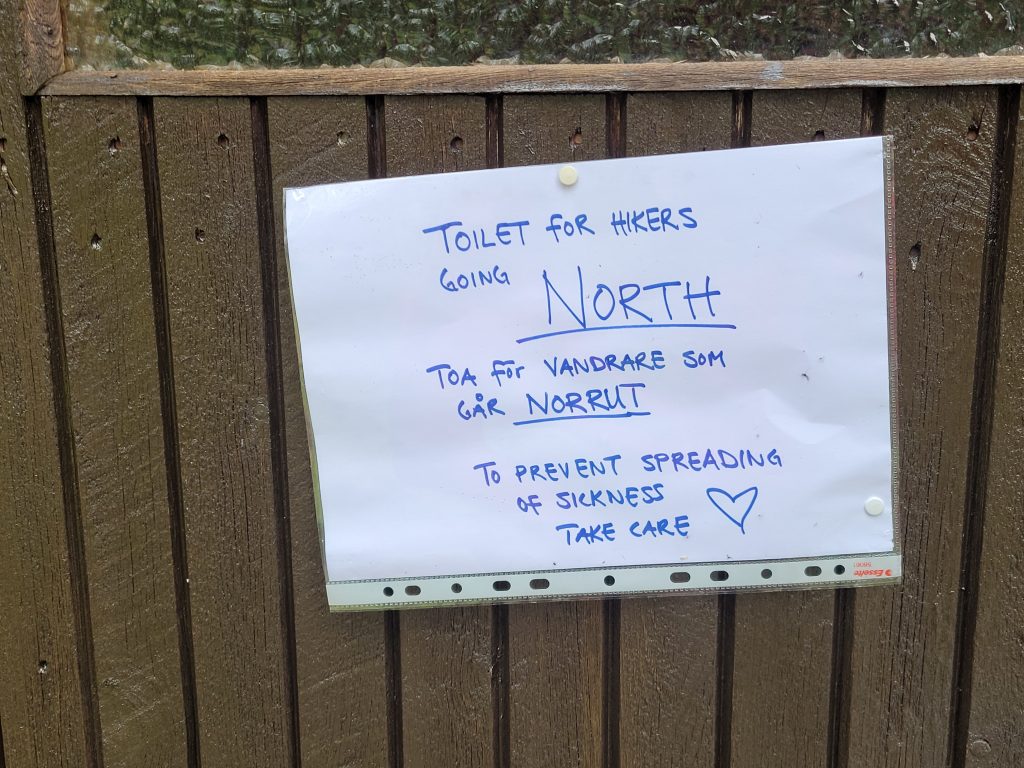 TOILET FOR HIKERS
GOING NORTH
TOA FÖR VANDRARE SOM
GÅR NORRUT
TO PREVENT SPREADING
OF SICKNESS
TAKE CARE
Esselte 56061